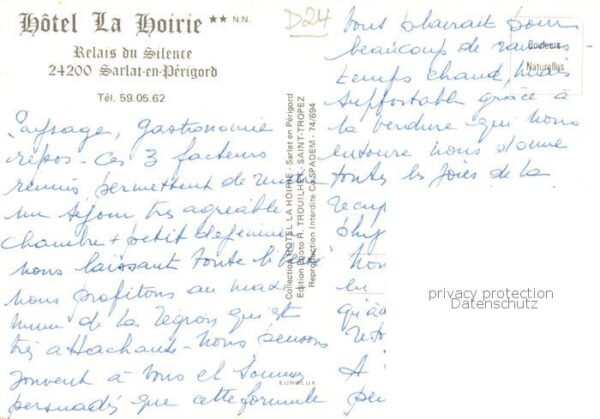 Hôtel La Hoirie ** N.N.
Relais du Silence
24200 Sarlat-en-Périgord
Tél. 59.05.62
D24
Paysages, gastronomie
repos - Ces 3 facteurs
réunis permettent de
un séjour très agréable
chambre + petit déjeuner
nous laissant toute liberté
nous profitons au maxi
mum de la région qui est
très attachante - Nous pensons
souvent à vous et sommes
persuadés que cette formule
Collection HOTEL LA HOIRIE - Sarlat en Périgord
Edition Photo R. TROUILHE - SAINT-TROPEZ
Reproduction Interdite Co SPADEM - 74/894
EUROLUX
vous plairait pour
beaucoup de raisons -
temps chaud, mais
supportable grâce à
la verdure qui nous
entoure nous donne
toutes les joies de la
Couleurs
Naturelles
privacy protection
Datenschutz